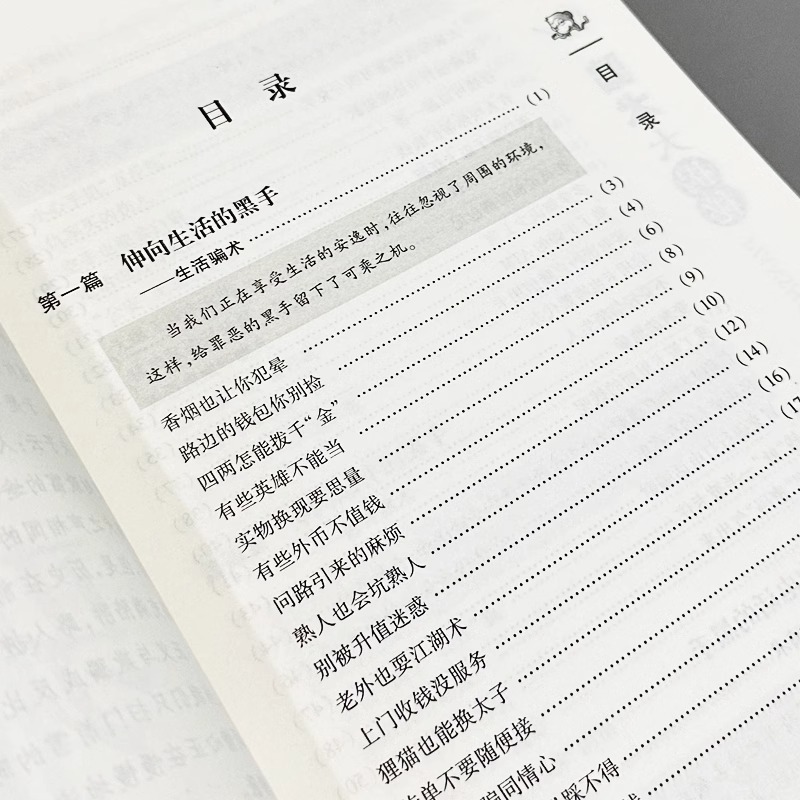 目 录
目 录
第一篇 伸向生活的黑手
——生活骗术 (1)
当我们正在享受生活的安逸时,往往忽视了周围的环境,
这样,给罪恶的黑手留下了可乘之机。
香烟也让你犯晕 (3)
路边的钱包你别捡 (4)
四两怎能拨千“金” (6)
有些英雄不能当 (8)
实物换现要思量 (9)
有些外币不值钱 (10)
问路引来的麻烦 (12)
熟人也会坑熟人 (14)
别被升值迷惑 (16)
老外也耍江湖术 (17
上门收钱没服务
狸猫也能换太子
单不要随便接
骗同情心
踩不得